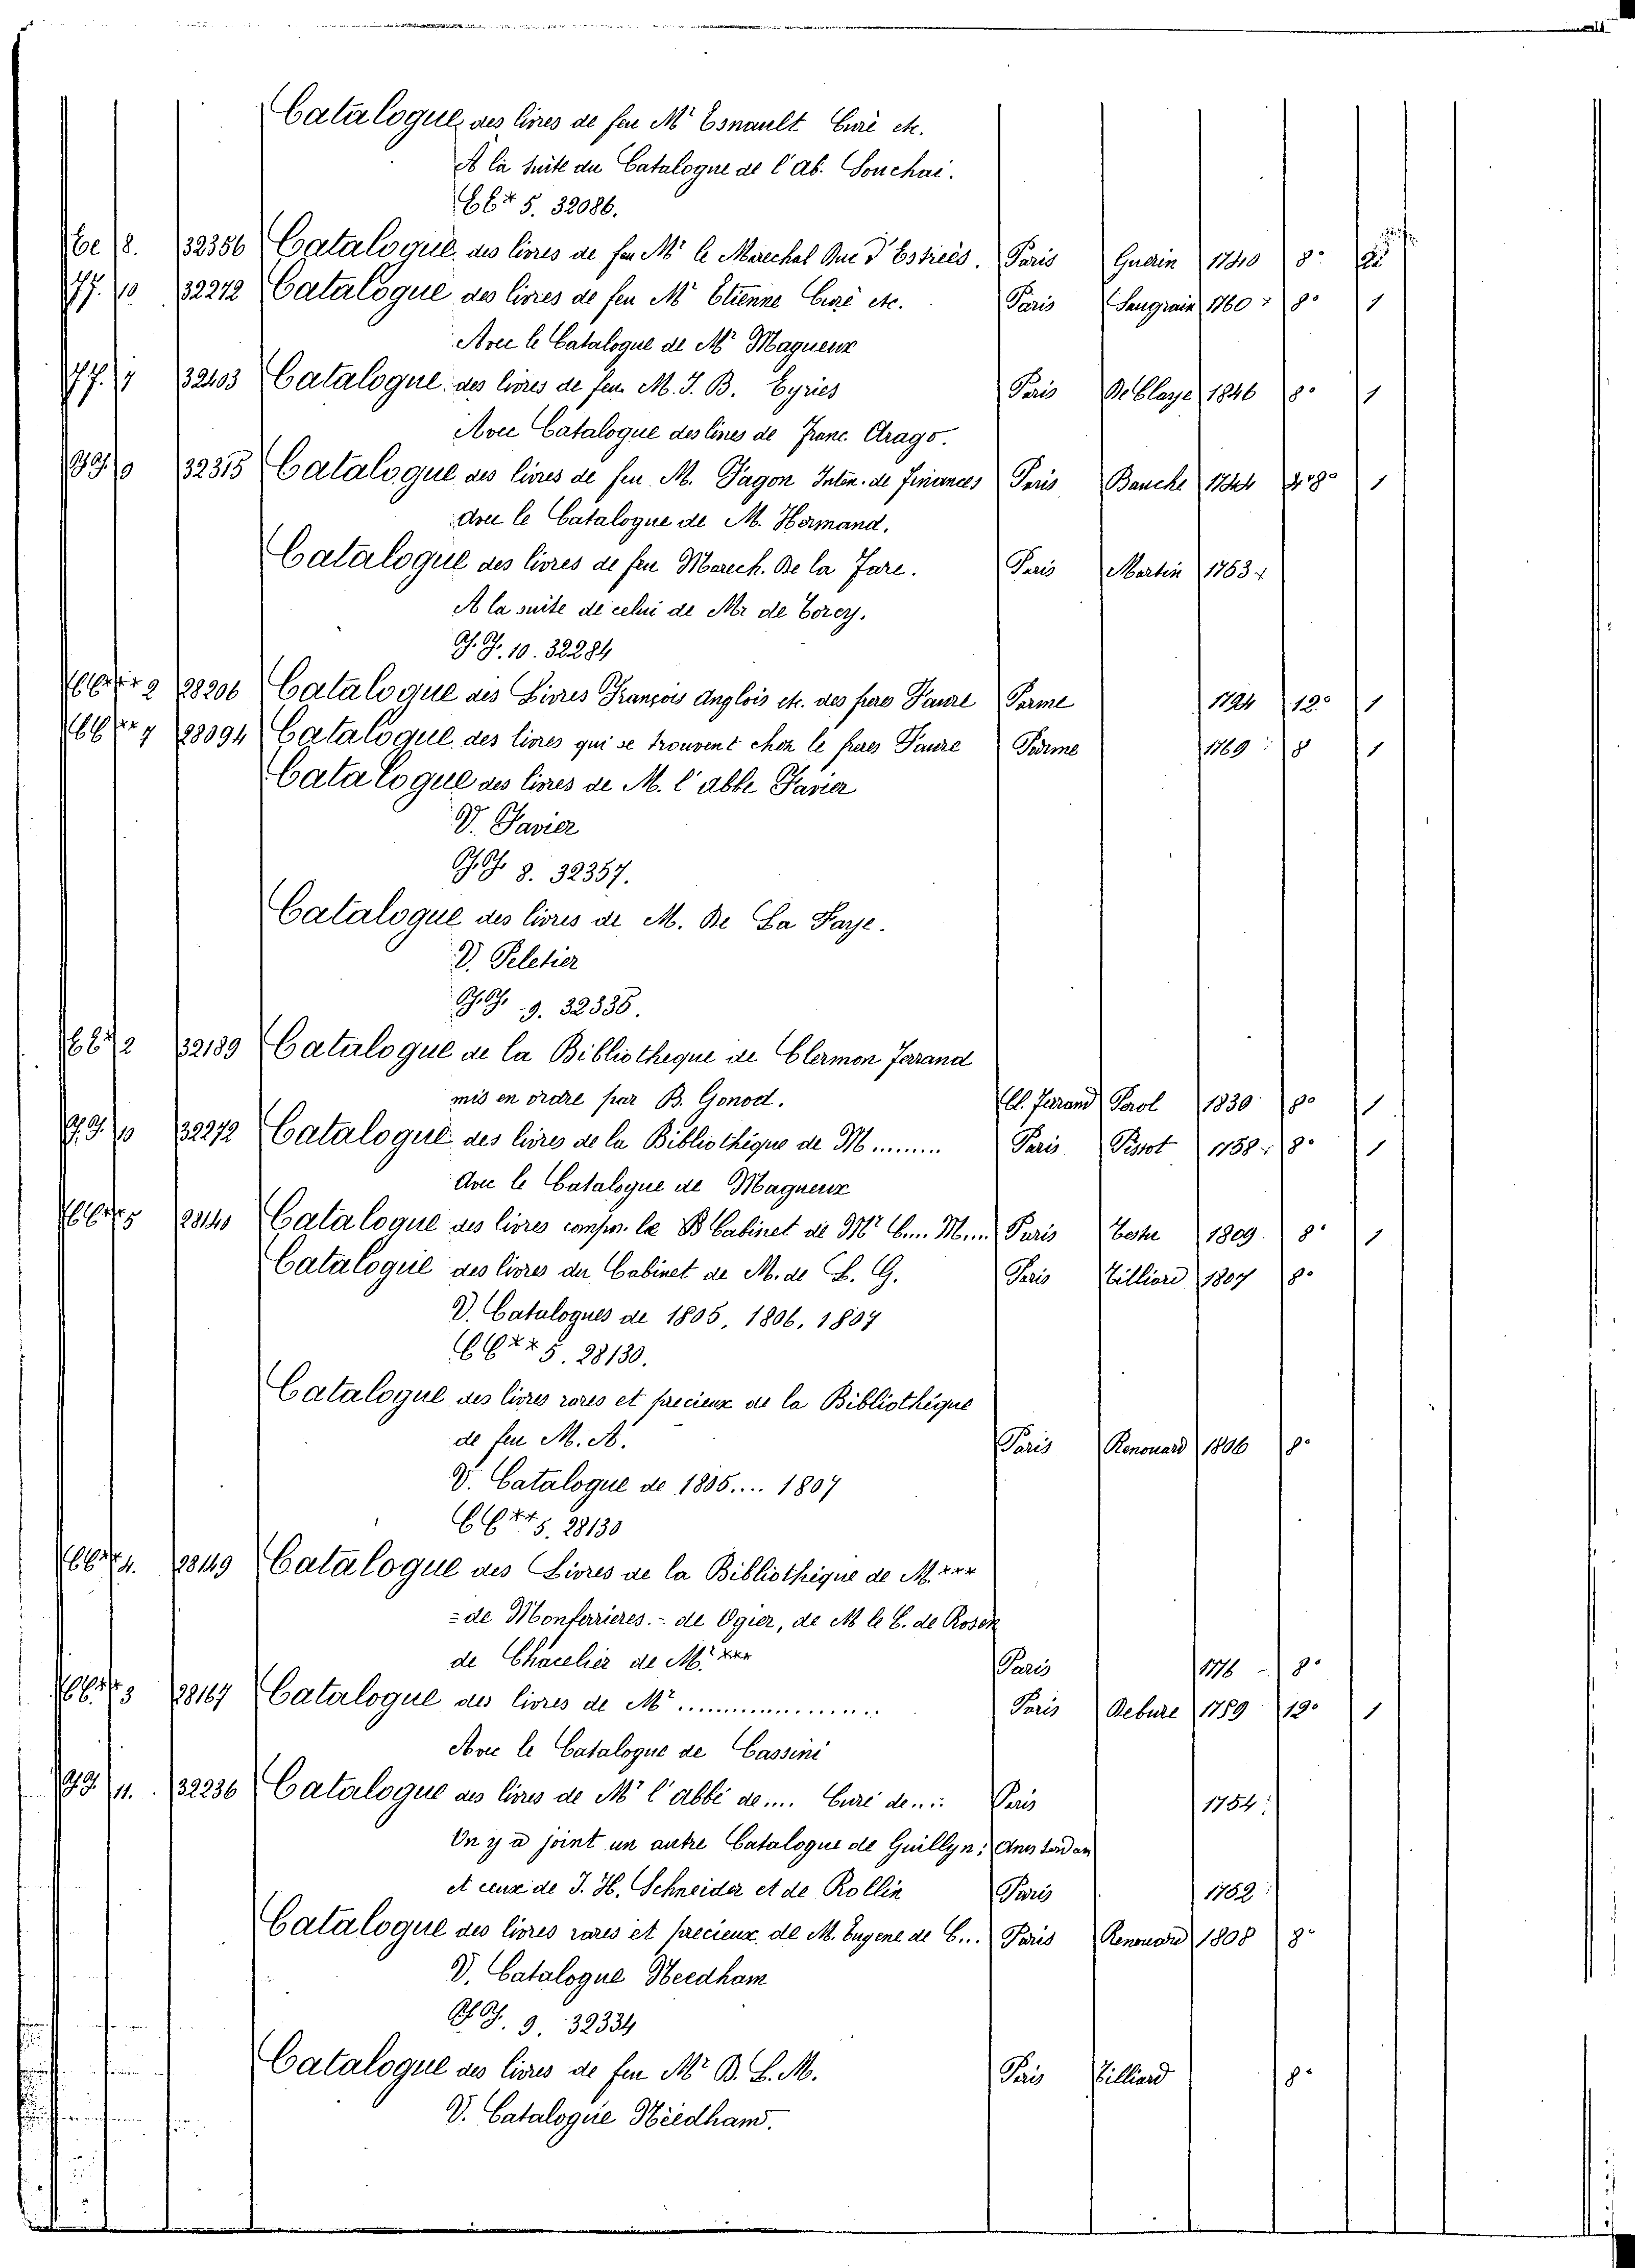 Catalogue des livres de feu Mr Esnault Curé etc.
A la suite du Catalogue de l'Ab. Souchai.
5. 32086.
8. 32356 Catalogue des livres de feu Mr le Marechal Duc d'Estrées. Paris Guerin 1740 8°
10 32272 Catalogue des livres de feu Mr Etienne Curé etc. Paris Saugrain 1760 8° 1
Avec le Catalogue de Mr Magueux
7 32403 Catalogue des livres de feu M. J. B. Eyries Paris De Blaye 1846 8° 1
Avec Catalogue des livres de Franc. Arago.
9 32315 Catalogue des livres de feu M. Fagon Inten. de finances Paris Bauche 1744 8° 1
Avec le Catalogue de M. Hermand.
Catalogue des livres de feu Marech. De la Fare. Paris Martin 1753
A la suite de celui de Mr de Torcy.
10. 32284
2 28206 Catalogue des Livres François Anglois etc. des frères Faure Parme 1794 12° 1
7 28094 Catalogue des livres qui se trouvent chez le freres Faure Parme 1769 8 1
Catalogue des livres de M. l'abbe Favier
V. Favier
8. 32357.
Catalogue des livres de M. De La Faye.
V. Peletier
9. 32335.
2 32189 Catalogue de la Bibliotheque de Clermon ferrand
mis en ordre par B. Gonod. Cl. ferrand Perol 1830 8° 1
10 32272 Catalogue des livres de la Bibliothéque de M....... Paris Pissot 1758 8° 1
Avec le Catalogue de Magueux
5 28140 Catalogue des livres compos. le B Cabinet de Mr C... M... Paris 1809 8° 1
Catalogue des livres du Cabinet de M. de L. G. Paris Tilliard 1807 8°
V. Catalogues de 1805, 1806, 1807
5. 28130.
Catalogue des livres rares et precieux de la Bibliothéque
de feu M. A. Paris Renouard 1806 8°
V. Catalogue de 1805.... 1807
5. 28130
4. 28149 Catalogue des Livres de la Bibliothéque de M. ***
= de Monferrieres. - de Ogier, de M le C. de Rosen
de Chacelier de Mr *** Paris 1776 8°
3 28167 Catalogue des livres de Mr ............... Paris Debure 1789 12° 1
Avec le Catalogue de Cassini
11. 32236 Catalogue des livres de Mr l'abbé de.... Curé de... Paris 1754
On y a joint un autre Catalogue de Guillyn; Amsterdam
et ceux de J. H. Schneider et de Rollin Paris 1752
Catalogue des livres rares et precieux de M. Eugene de C... Paris Renouard 1808 8°
V. Catalogue Needham
9. 32334
Catalogue des livres de feu Mr B. L. M. Paris Tilliard 8°
V. Catalogue Needham.